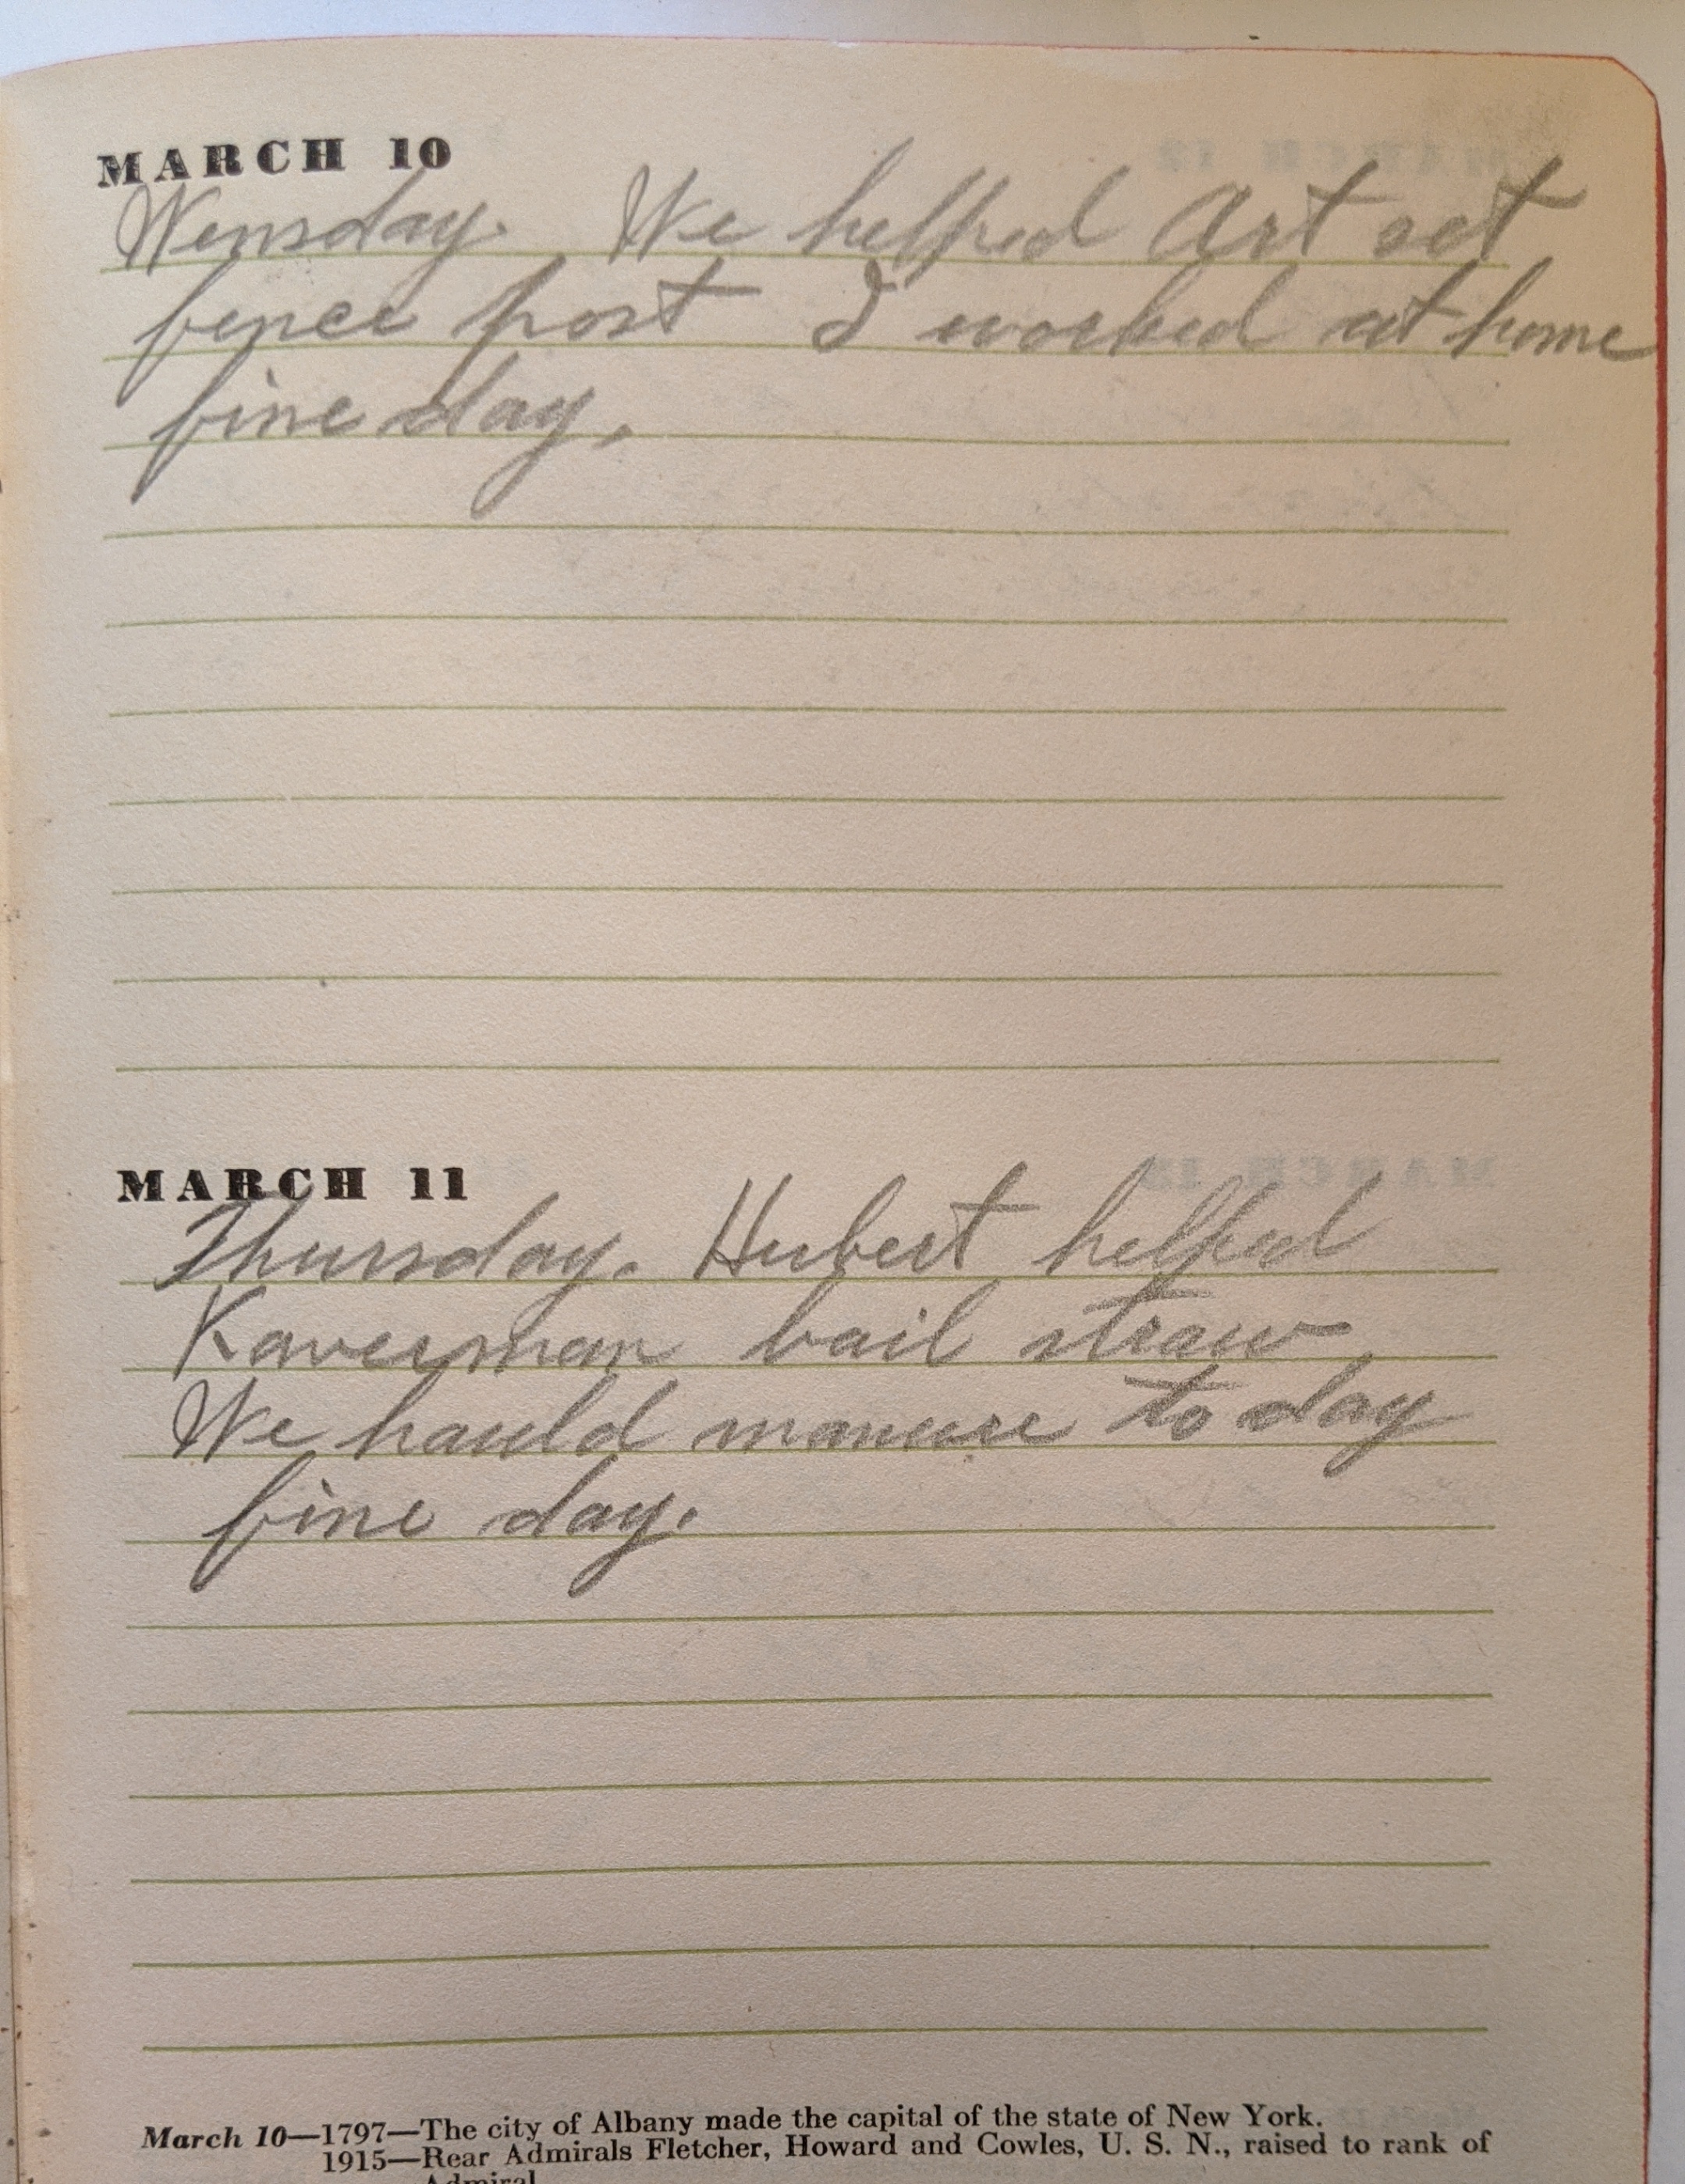 MARCH 10
Wensday. We helped Art set
fence post I worked at home
fine day.
MARCH 11
Thursday. Hubert helped
Kaverman bail straw
We hauld manure to day
fine day.
March 10—1797—The city of Albany made the capital of the state of New York.
1915—Rear Admirals Fletcher, Howard and Cowles, U. S. N., raised to rank of
Admiral